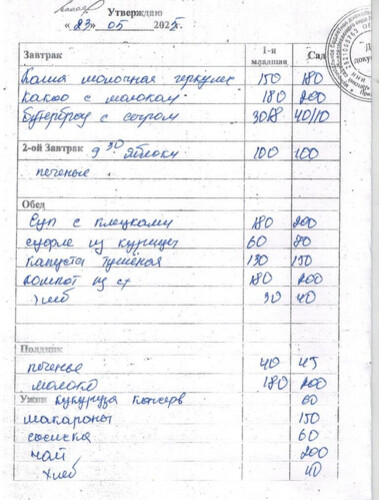 Утверждаю
«23» 05 2025г.
Завтрак 1-я младшая Сад
Каша молочная геркулес 150 180
Какао с молоком 180 200
Бутерброд с сыром 30/8 40/10
2-ой Завтрак 9 30 Яблоки 100 100
печенье
Обед
Суп с клецками 180 200
суфле из курицы 60 80
капуста тушёная 130 150
компот из 180 200
хлеб 30 40
Полдник
печенье 40 45
молоко 180 200
Ужин кукуруза консерв 60
макароны 150
сосиска 60
чай 200
хлеб 40